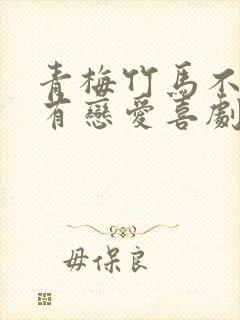 青梅竹馬不
有戀愛喜劇
毋保良